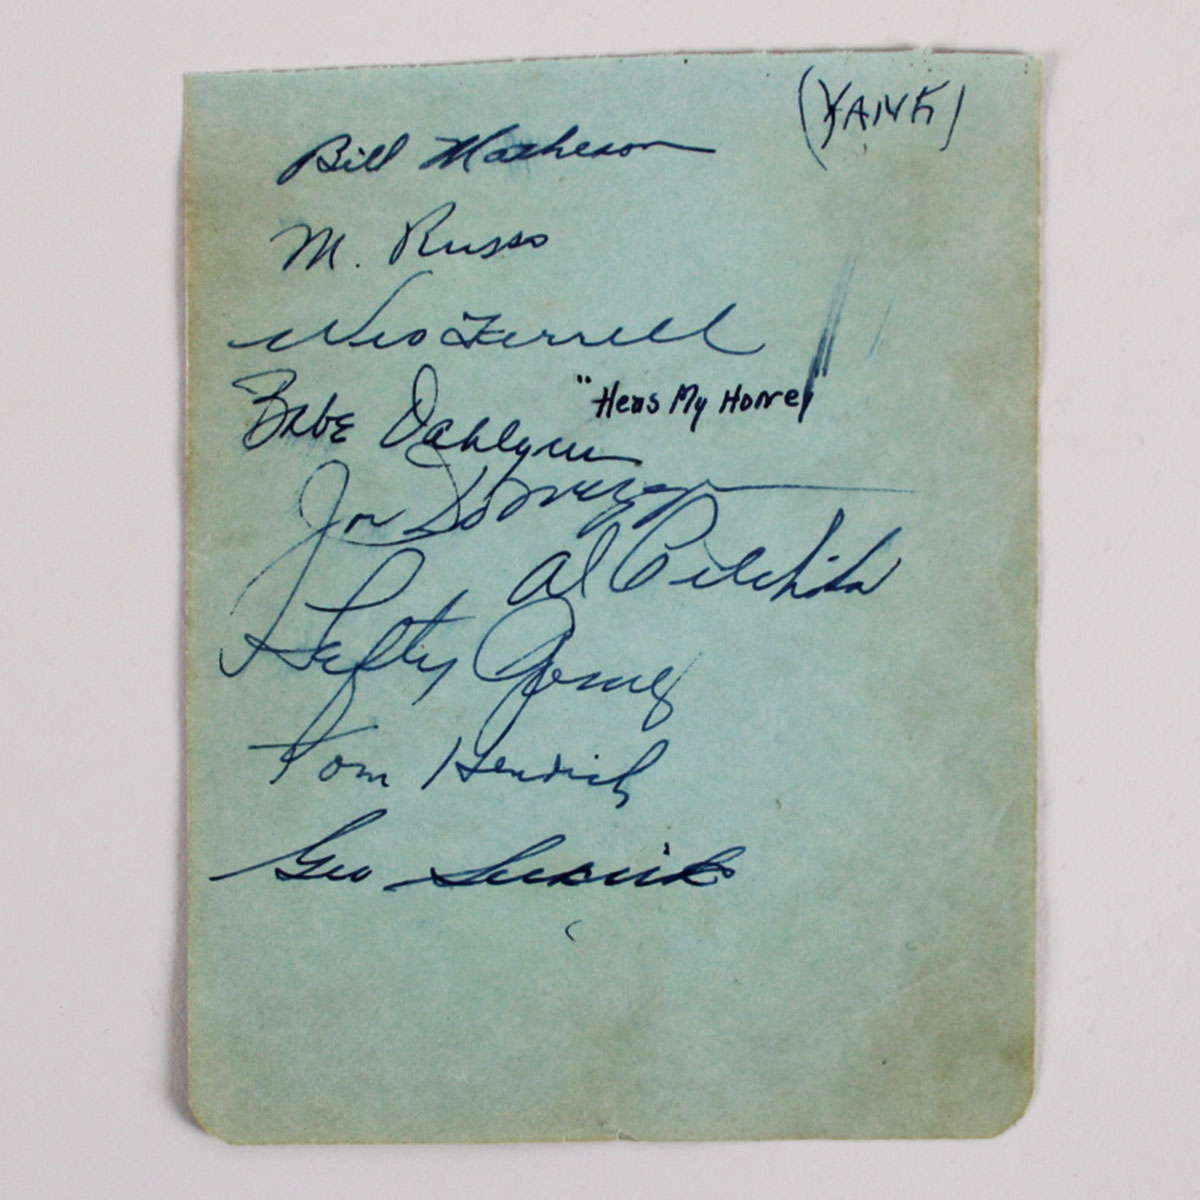 (YANK)
Bill Matheson
M. Russo
Wes Ferrell
"Heas My Honey"
Babe Dahlgren
Joe DiMaggio
Al
Lefty Gomez
Tom Henrich
Geo Selkirk